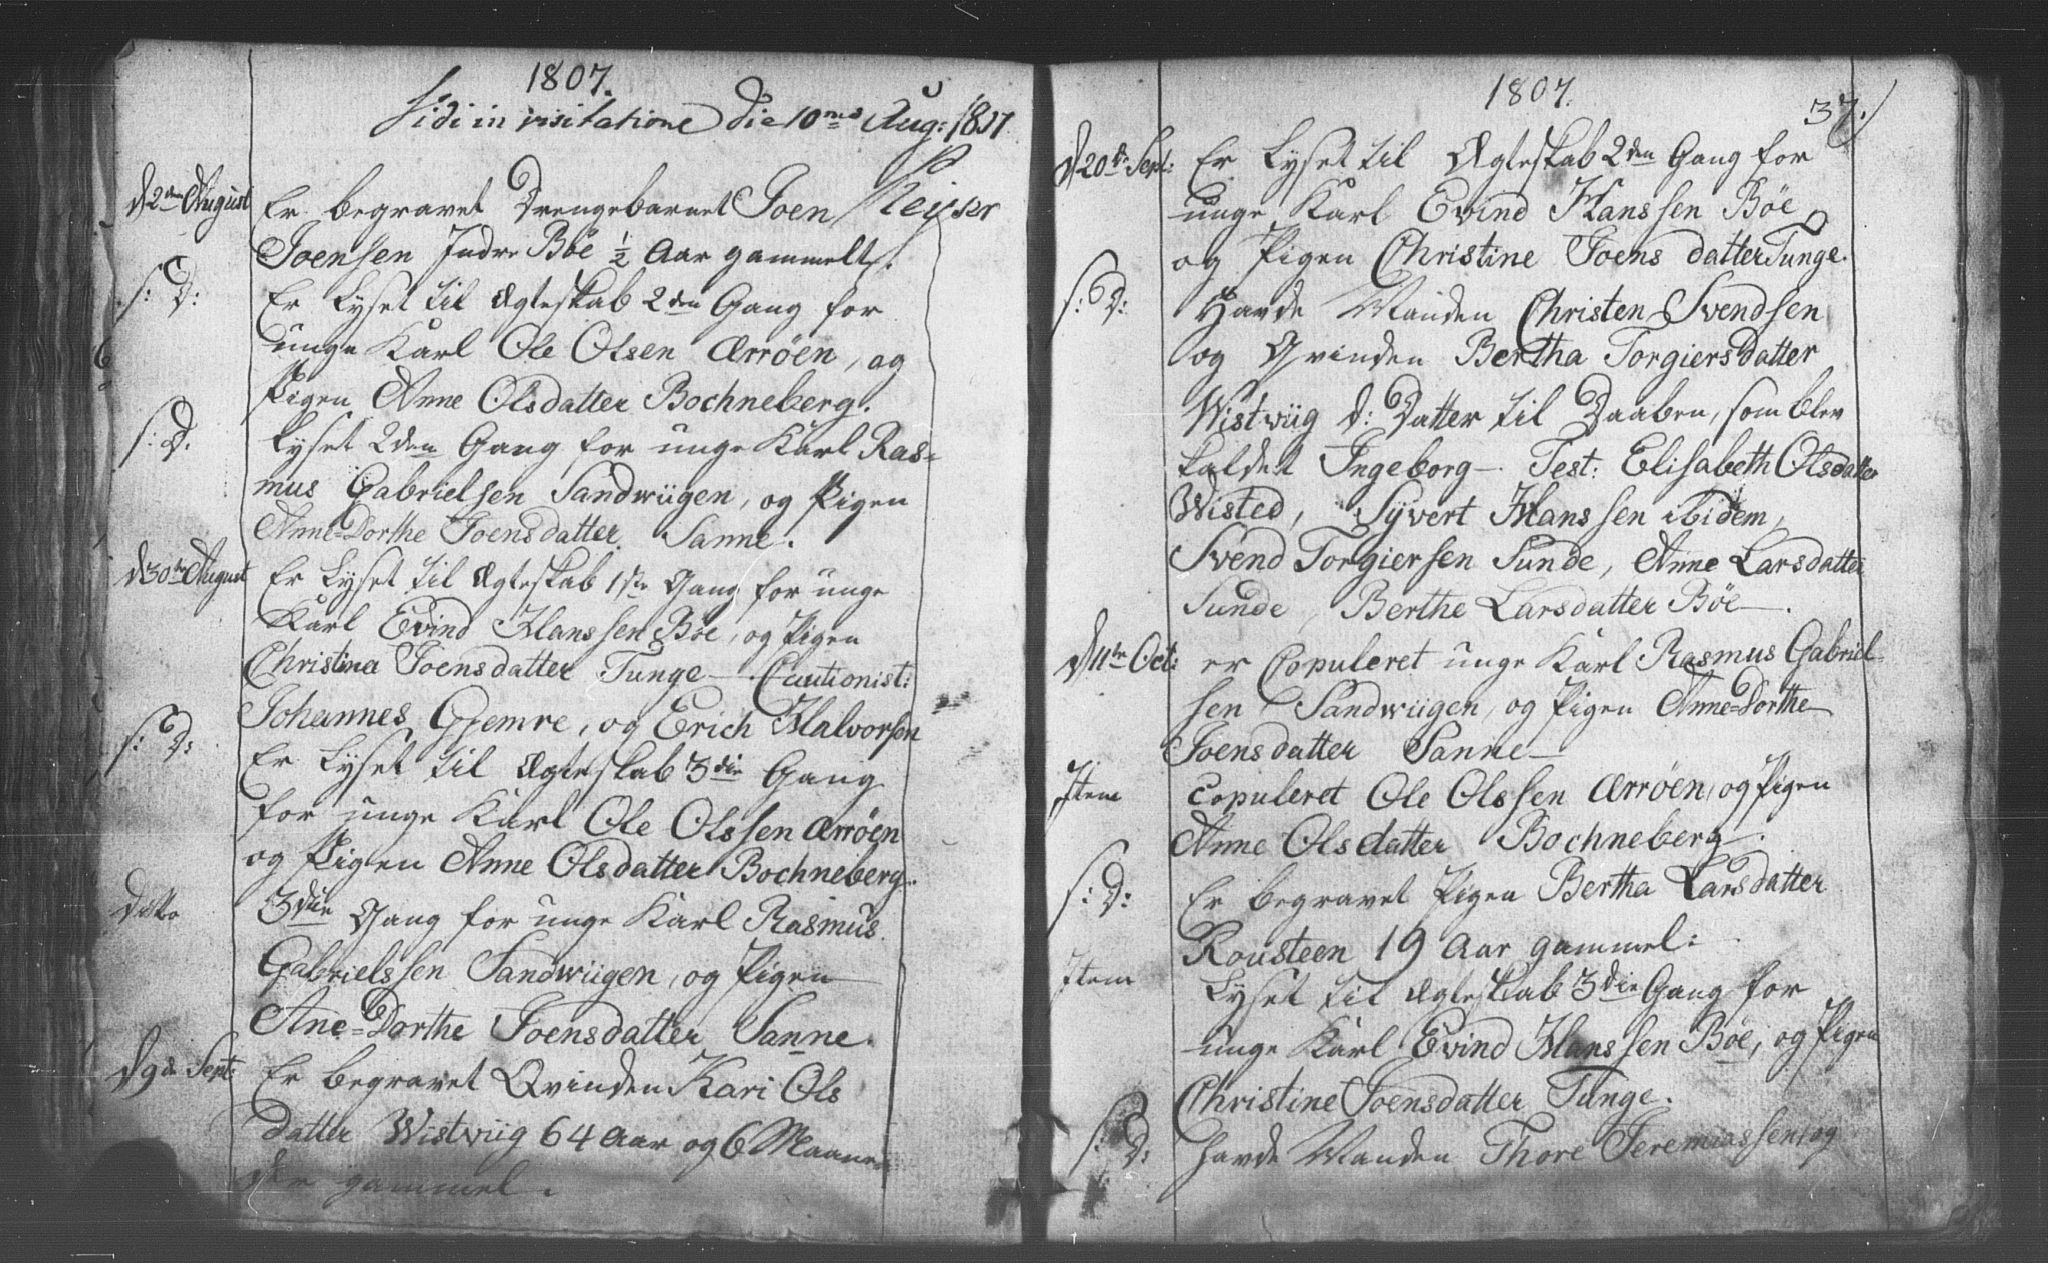 1807.
Vidi in visitatione die 10me Aug: 1807.
P Keyser
d 2den August
Er begravet Drengebarnet Joen
Joensen Indre Böe ½ Aar gammelt.
s: D:
Er lyset til Ægteskab 2den Gang for
unge Karl Ole Olsen Ærröen, og
Pigen Anne Olsdatter Bochneberg.
s: D.
Lyset 2den Gang for unge Karl Ras=
mus Gabrielsen Sandwiigen, og Pigen
Anne=Dorthe Joensdatter Sanne.
d 30te August
Er lyset til Ægteskab 1ste Gang for unge
Karl Evind Hanssen Böe, og Pigen
Christina Joensdatter Tunge — Cautionist:
Johannes Gjemre, og Erich Halvorsen
s: D:
Er lyset til Ægteskab 3die Gang
for unge Karl Ole Olssen Ærröen
og Pigen Anne Olsdatter Bochneberg.
Ditto
3die Gang for unge Karl Rasmus
Gabrielssen Sandwiigen, og Pigen
Ane=Dorthe Joensdatter Sanne.
d 9de Sept:
Er begravet Qvinden Kari Ols
datter Wistwiig 64 Aar og 6 Maane
der gammel.
1807.
37.
d 20de Sept:
Er lyset til Ægteskab 2den Gang for
unge Karl Evind Hanssen Böe
og Pigen Christine Joens datter Tunge.
s: D:
Havde Manden Christen Svendsen
og Qvinden Bertha Torgiersdatter
Wistwiig d: Datter til Daaben, som blev
kaldet Ingeborg — Test: Elisabeth Olsdatter
Wisted, Syvert Hanssen ibidem,
Svend Torgiersen Sunde, Anne Larsdatter
Sunde, Berthe Larsdatter Böe —.
d 11te Oct:
er Copuleret unge Karl Rasmus Gabriel=
sen Sandwiigen, og Pigen Anne=Dorthe
Joensdatter Sanne —
Item
copuleret Ole Olssen Ærröen, og Pigen
Anne Olsdatter Bochneberg.
s: D:
Er begravet Pigen Bertha Larsdatter
Rousteen 19 Aar gammel:
Item
Lyset til Ægteskab 3die Gang for
unge Karl Evind Hanssen Böe, og Pigen
Christine Joensdatter Tunge.
s: D:
Havde Manden Thore Jeremiassen og